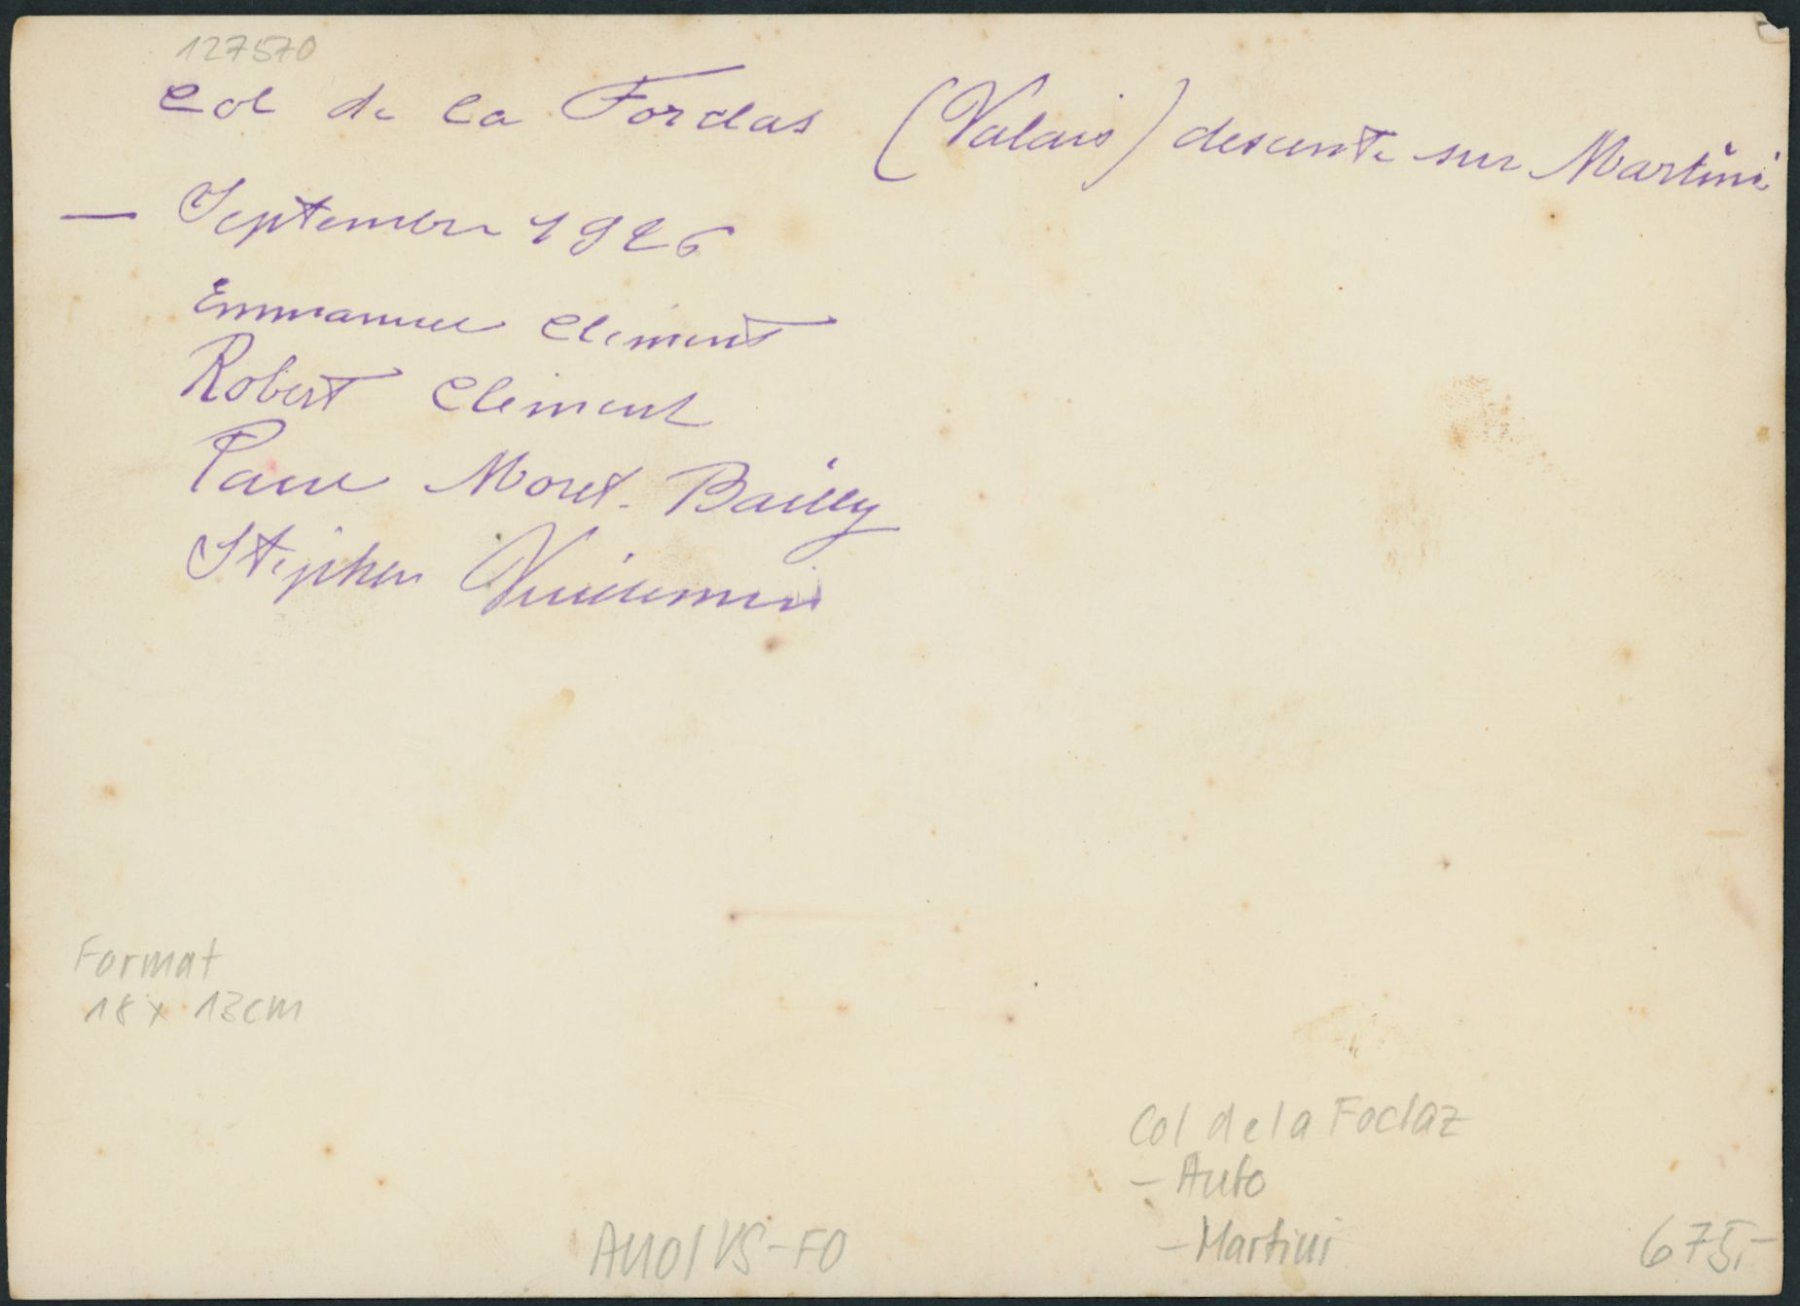 127570
Col de la Forclas (Valais) descente sur Martini
— Septembre 1926
Emmanuel Clement
Robert Clement
Paul Moret-Bailly
Stephen Vuillemin
Format
18 x 13cm
Col de la Foclaz
- Auto
- Martini
675,-